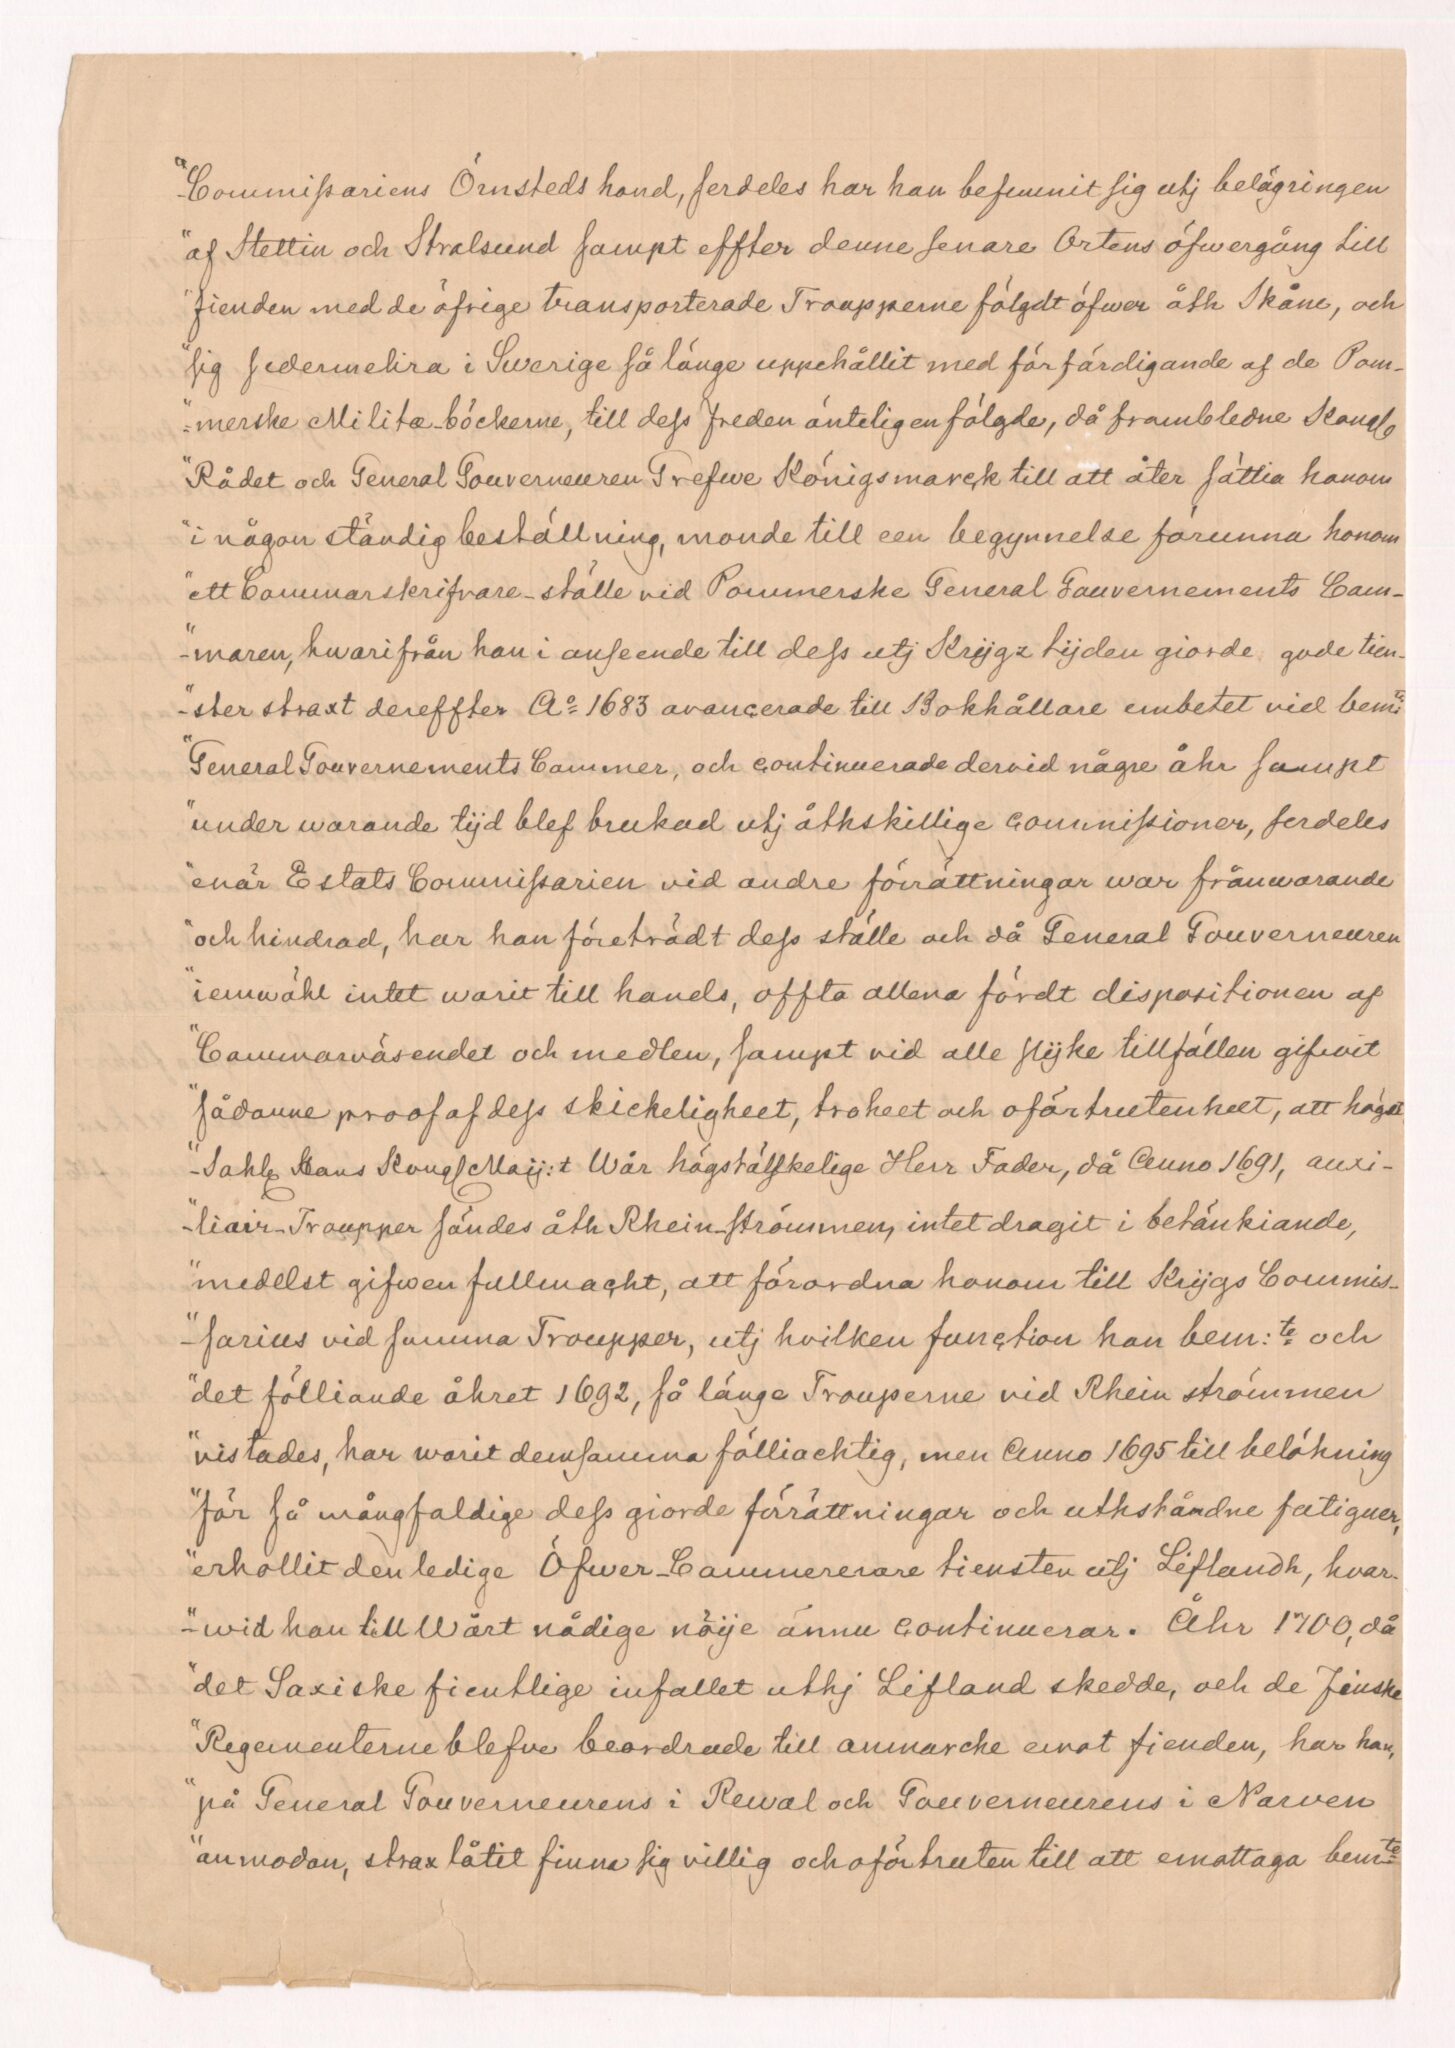 "Commissariens Örnsteds hand, serdeles har han befunnit sig utj belägringen
"af Stettin och Stralsund sampt effter denne senare Ortens öfwergång till
"fienden med de öfrige transporterade Troupperne fölgdt öfwer åth Skåne, och
"sig sedermehra i Swerige så länge uppehållit med förfärdigande af de Pom-
"-merske Militæ-böckerne, till dess freden änteligen fölgde, då frambledne Kongl
"Rådet och General Gouverneuren Grefwe Königsmarck till att åter sättia honom
"i någon ständig beställning, monde till een begynnelse förunna honom
"ett Cammarskrifvare-ställe vid Pommerske General Gouvernements Cam-
"-maren, hwarifrån han i anseende till dess utj Krijgz tijden giorde gode tien-
"-ster straxt dereffter Ao 1683 avancerade till Bokhållare embetet vid bemte
"General Gouvernements Cammer, och continuerade dervid någre åhr sampt
"under warande tijd blef brukad utj åthskillige commissioner, serdeles
"enär Estats Commissarien vid andre förrättningar war frånwarande
"och hindrad, har han företrädt dess ställe och då General Gouverneuren
"iemwähl intet warit till hands, offta allena fördt dispositionen af
"Cammarväsendet och medlen, sampt vid alle slijke tillfällen gifwit
"sådanne proof af dess skickeligheet, troheet och oförtrutenheet, att högst
"-Sahl Hans Kongl Maij:t Wår högstälskelige Herr Fader, då Anno 1691, auxi-
"-liair-Troupper sändes åth Rhein-strömmen, intet dragit i betänkiande,
"medelst gifwen fullmacht, att förordna honom till Krijgs Commis-
"-sarius vid samma Troupper, utj hvilken function han bem:te och
"det fölliande åhret 1692, så länge Trouperne vid Rhein strömmen
"vistades, har warit demsamma fölliachtig, men Anno 1695 till belöhning
"för så mångfaldige dess giorde förrättningar och uthståndne fatiguer,
"erhollit den ledige Öfwer-Cammererare tiensten utj Lieflandh, hvar-
"-wid han till Wårt nådige nöije ännu continuerar. Åhr 1700, då
"det Saxiske fientlige infallet uthj Lifland skedde, och de Finske
"Regementerne blefve beordrade till anmarche emot fienden, har han,
"på General Gouverneurens i Rewal och Gouverneurens i Narven
"anmodan, strax låtit finna sig villig och oförtruten till att emottaga bemte